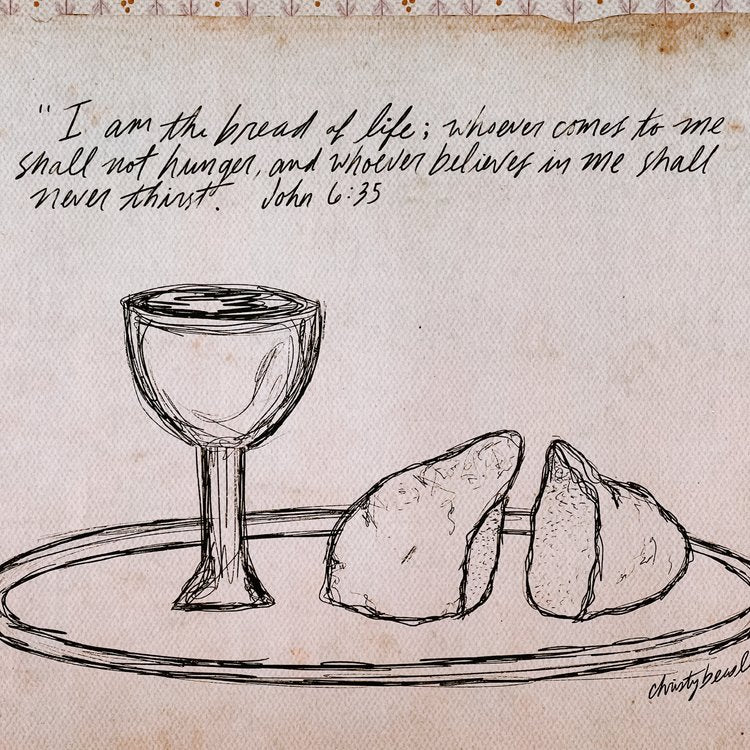 "I am the bread of life; whoever comes to me
shall not hunger, and whoever believes in me shall
never thirst. John 6:35